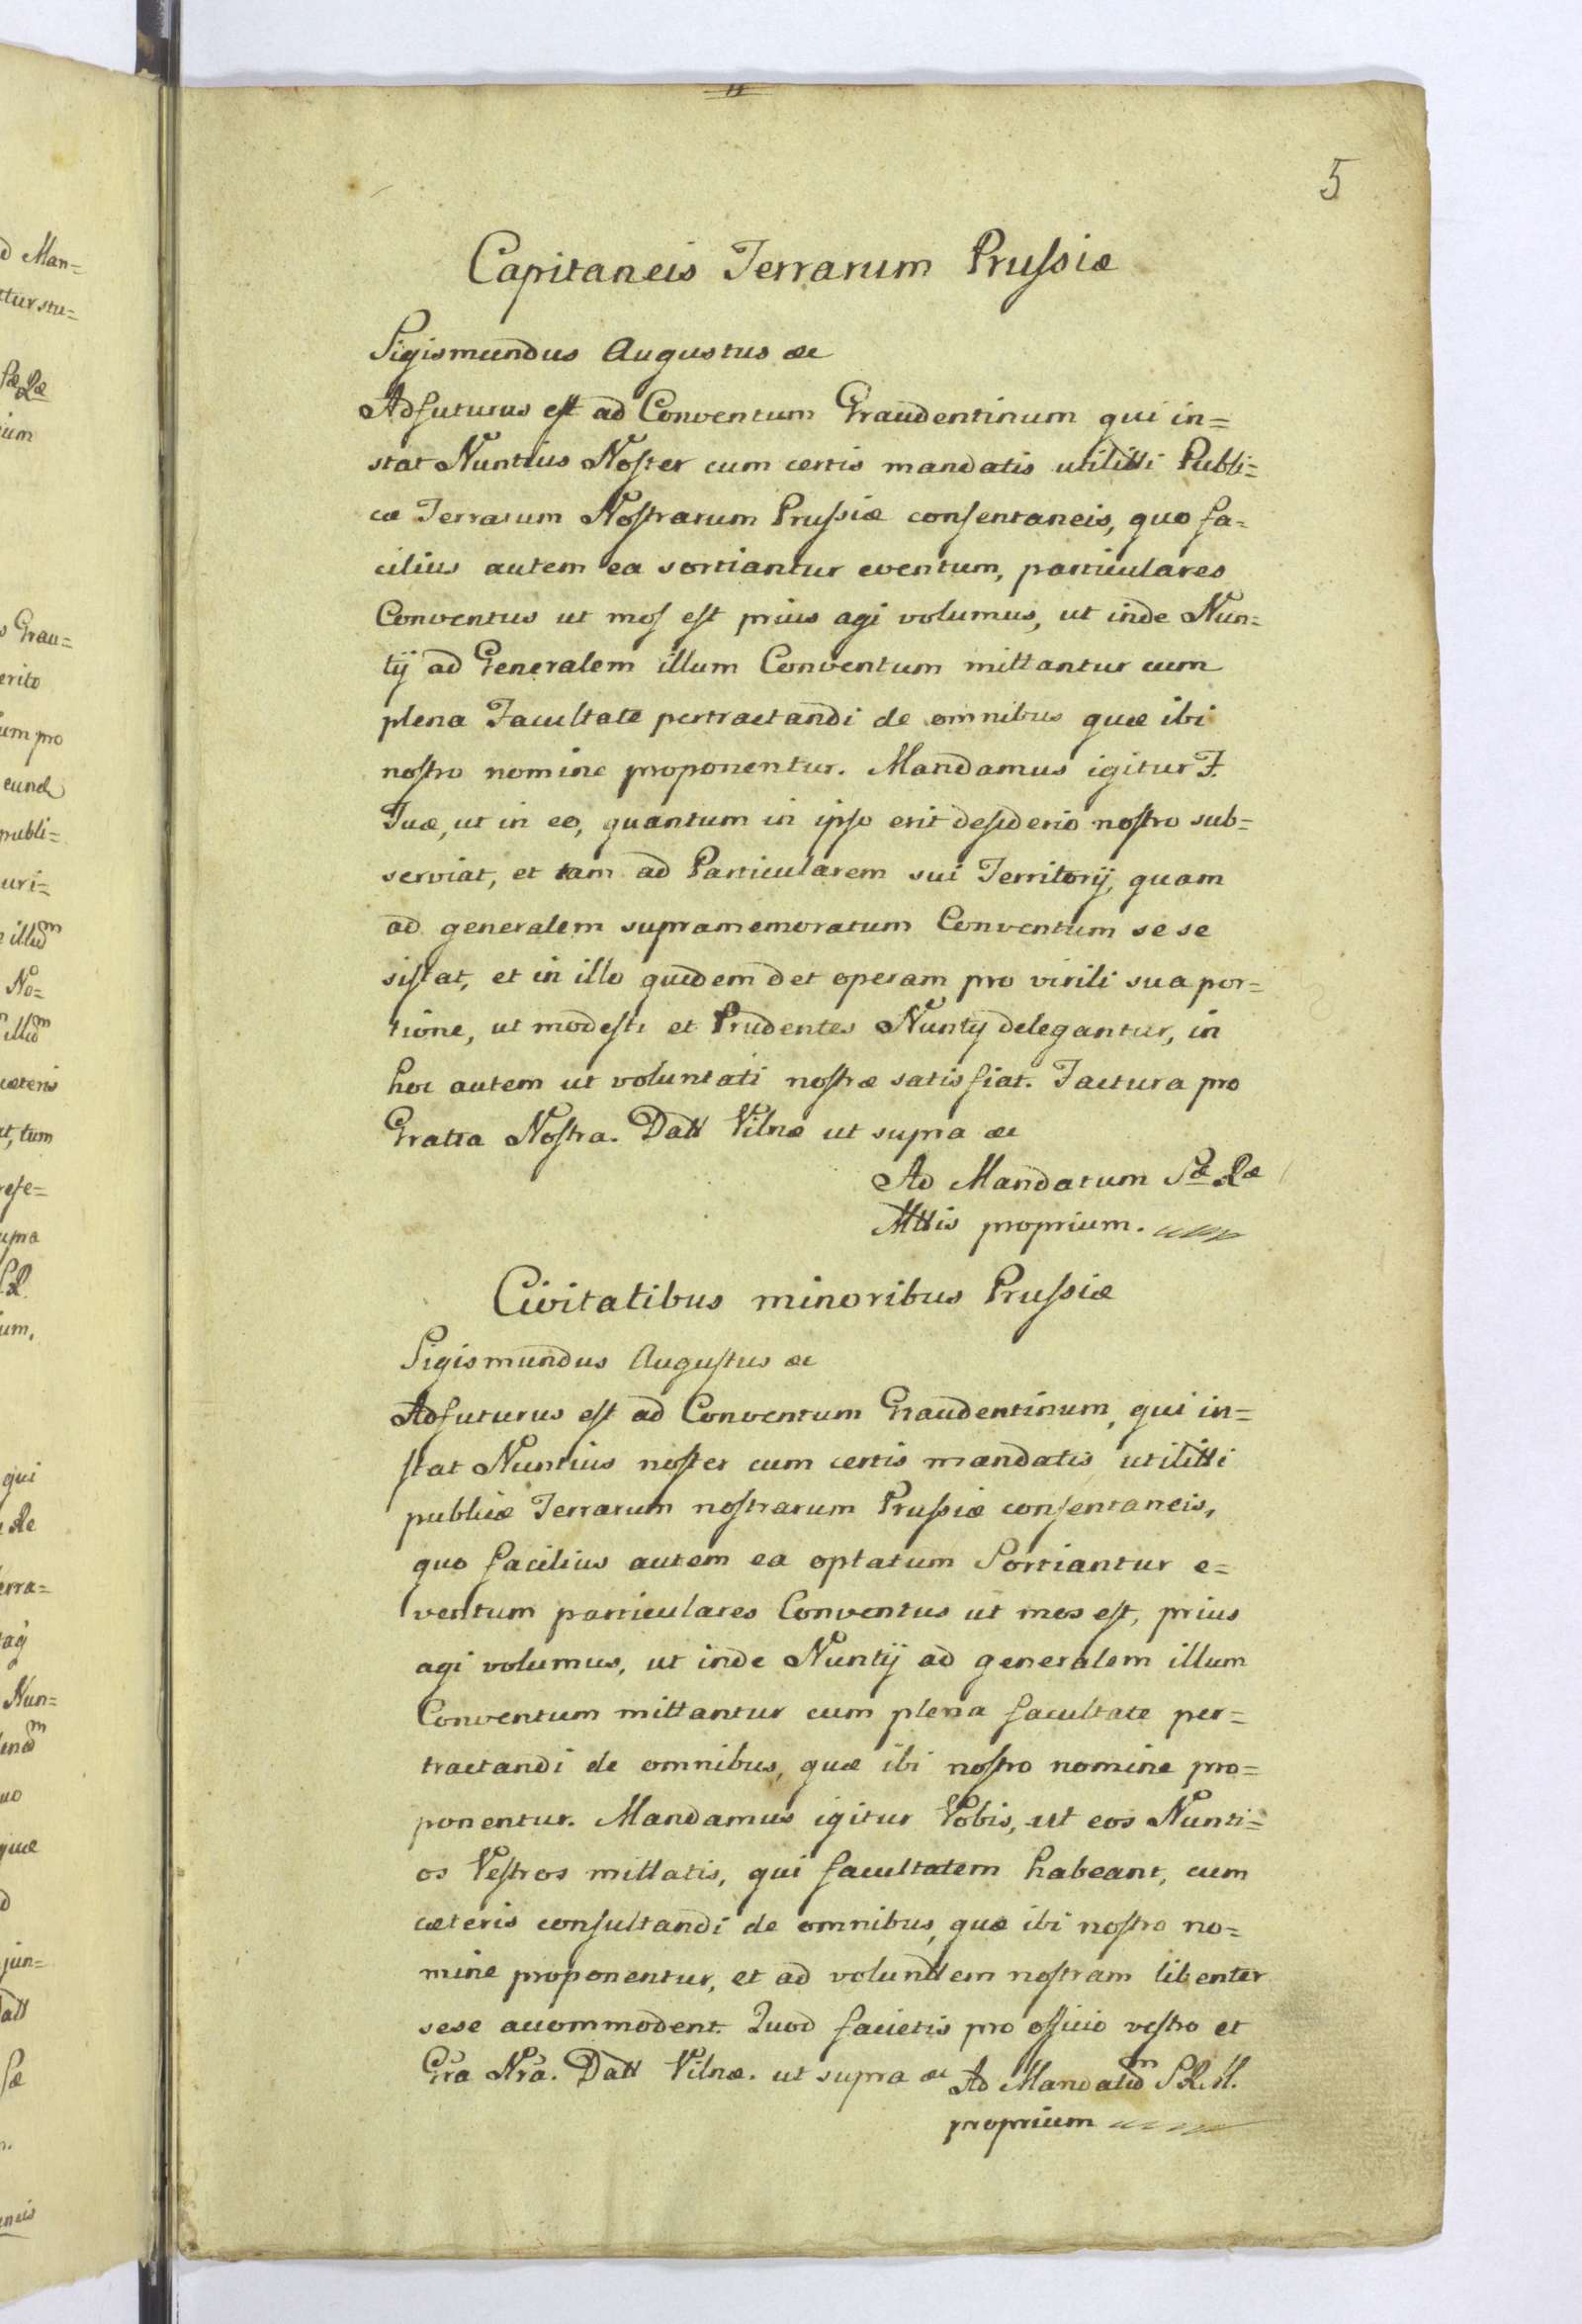 5
Capitaneis Terrarum Prussiæ
Sigismundus Augustus &c
Adfuturus est ad Conventum Graudentinum qui in=
stat Nuntius Noster cum certis mandatis utilitti Publi=
cæ Terrarum Nostrarum Prussiæ consentaneis, quo fa=
cilius autem ea sortiantur eventum, particulares
Conventus ut mos est prius agi volumus, ut inde Nun=
tij ad Generalem illum Conventum mittantur cum
plena Facultate pertractandi de omnibus quæ ibi
nostro nomine proponentur. Mandamus igitur F.
Tuæ, ut in eo, quantum in ipso erit desiderio nostro sub=
serviat, et tam ad Particularem sui Territorij, quam
ad generalem supramemoratum Conventum se se
sistat, et in illo quidem det operam pro virili sua por=
tione, ut modesti et Prudentes Nuntij delegantur, in
hoc autem ut voluntati nostræ satis fiat. Factura pro
Gratia Nostra. Datt Vilnæ ut supra &c
Ad Mandatum Sæ Ræ
Mttis proprium.
Civitatibus minoribus Prussiæ
Sigismundus Augustus &c
Adfuturus est ad Conventum Graudentinum, qui in=
stat Nuntius noster cum certis mandatis utilitti
publicæ Terrarum nostrarum Prussiæ consentaneis,
quo facilius autem ea optatum Sortiantur e=
ventum particulares Conventus ut mos est, prius
agi volumus, ut inde Nuntij ad generalem illum
Conventum mittantur cum plena facultate per=
tractandi de omnibus, quæ ibi nostro nomine pro=
ponentur. Mandamus igitur Vobis, ut eos Nunti=
os Vestros mittatis, qui facultatem habeant, cum
cæteris consultandi de omnibus, quæ ibi nostro no=
mine proponentur, et ad volunttem nostram libenter
sese accommodent. Quod facietis pro officio vestro et
Gra Nra. Datt Vilnæ. ut supra &c Ad Mandatum S.R.M.
proprium